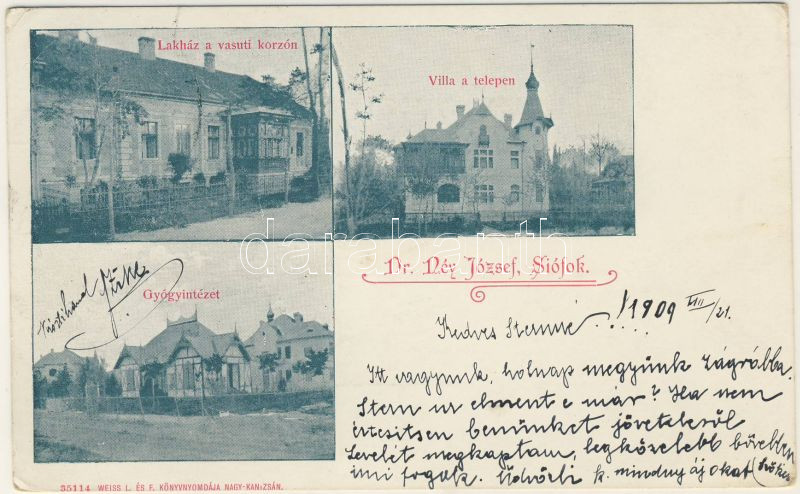 Lakház a vasuti korzón
Villa a telepen
Dr. Réy József, Siófok.
Gyógyintézet
Kedves Sternné! 1909 VIII/21.
Itt vagyunk, holnap megyünk Zágrábba.
Stern ur elment e már? Ha nem
értesitsen bennünket jöveteléről
Levelét megkaptam, legközelebb bővebben
irni fogok. Üdvözli k. mindnyájokat
35114 WEISS L. ÉS F. KÖNYVNYOMDÁJA NAGY-KANIZSÁN.
darabanth